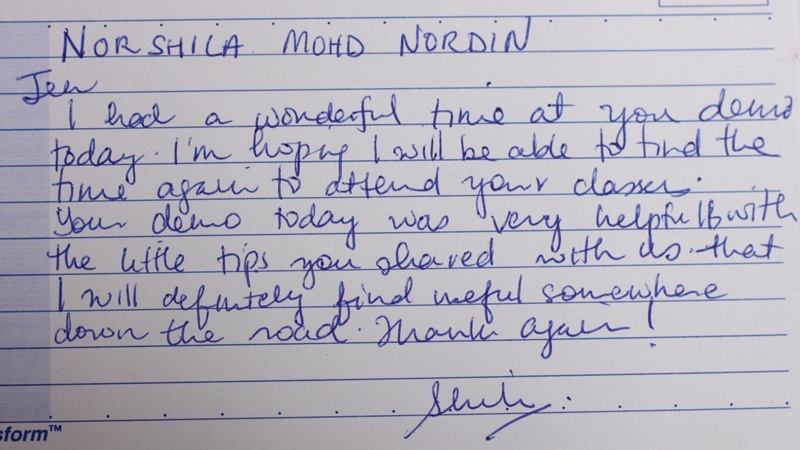 NORSHILA MOHD NORDIN
Jen
I had a wonderful time at you demo
today. I'm hoping I will be able to find the
time again to attend your classes.
Your demo today was very helpful & with
the little tips you shared with us that
I will definitely find useful somewhere
down the road. Thanks again!
sform™